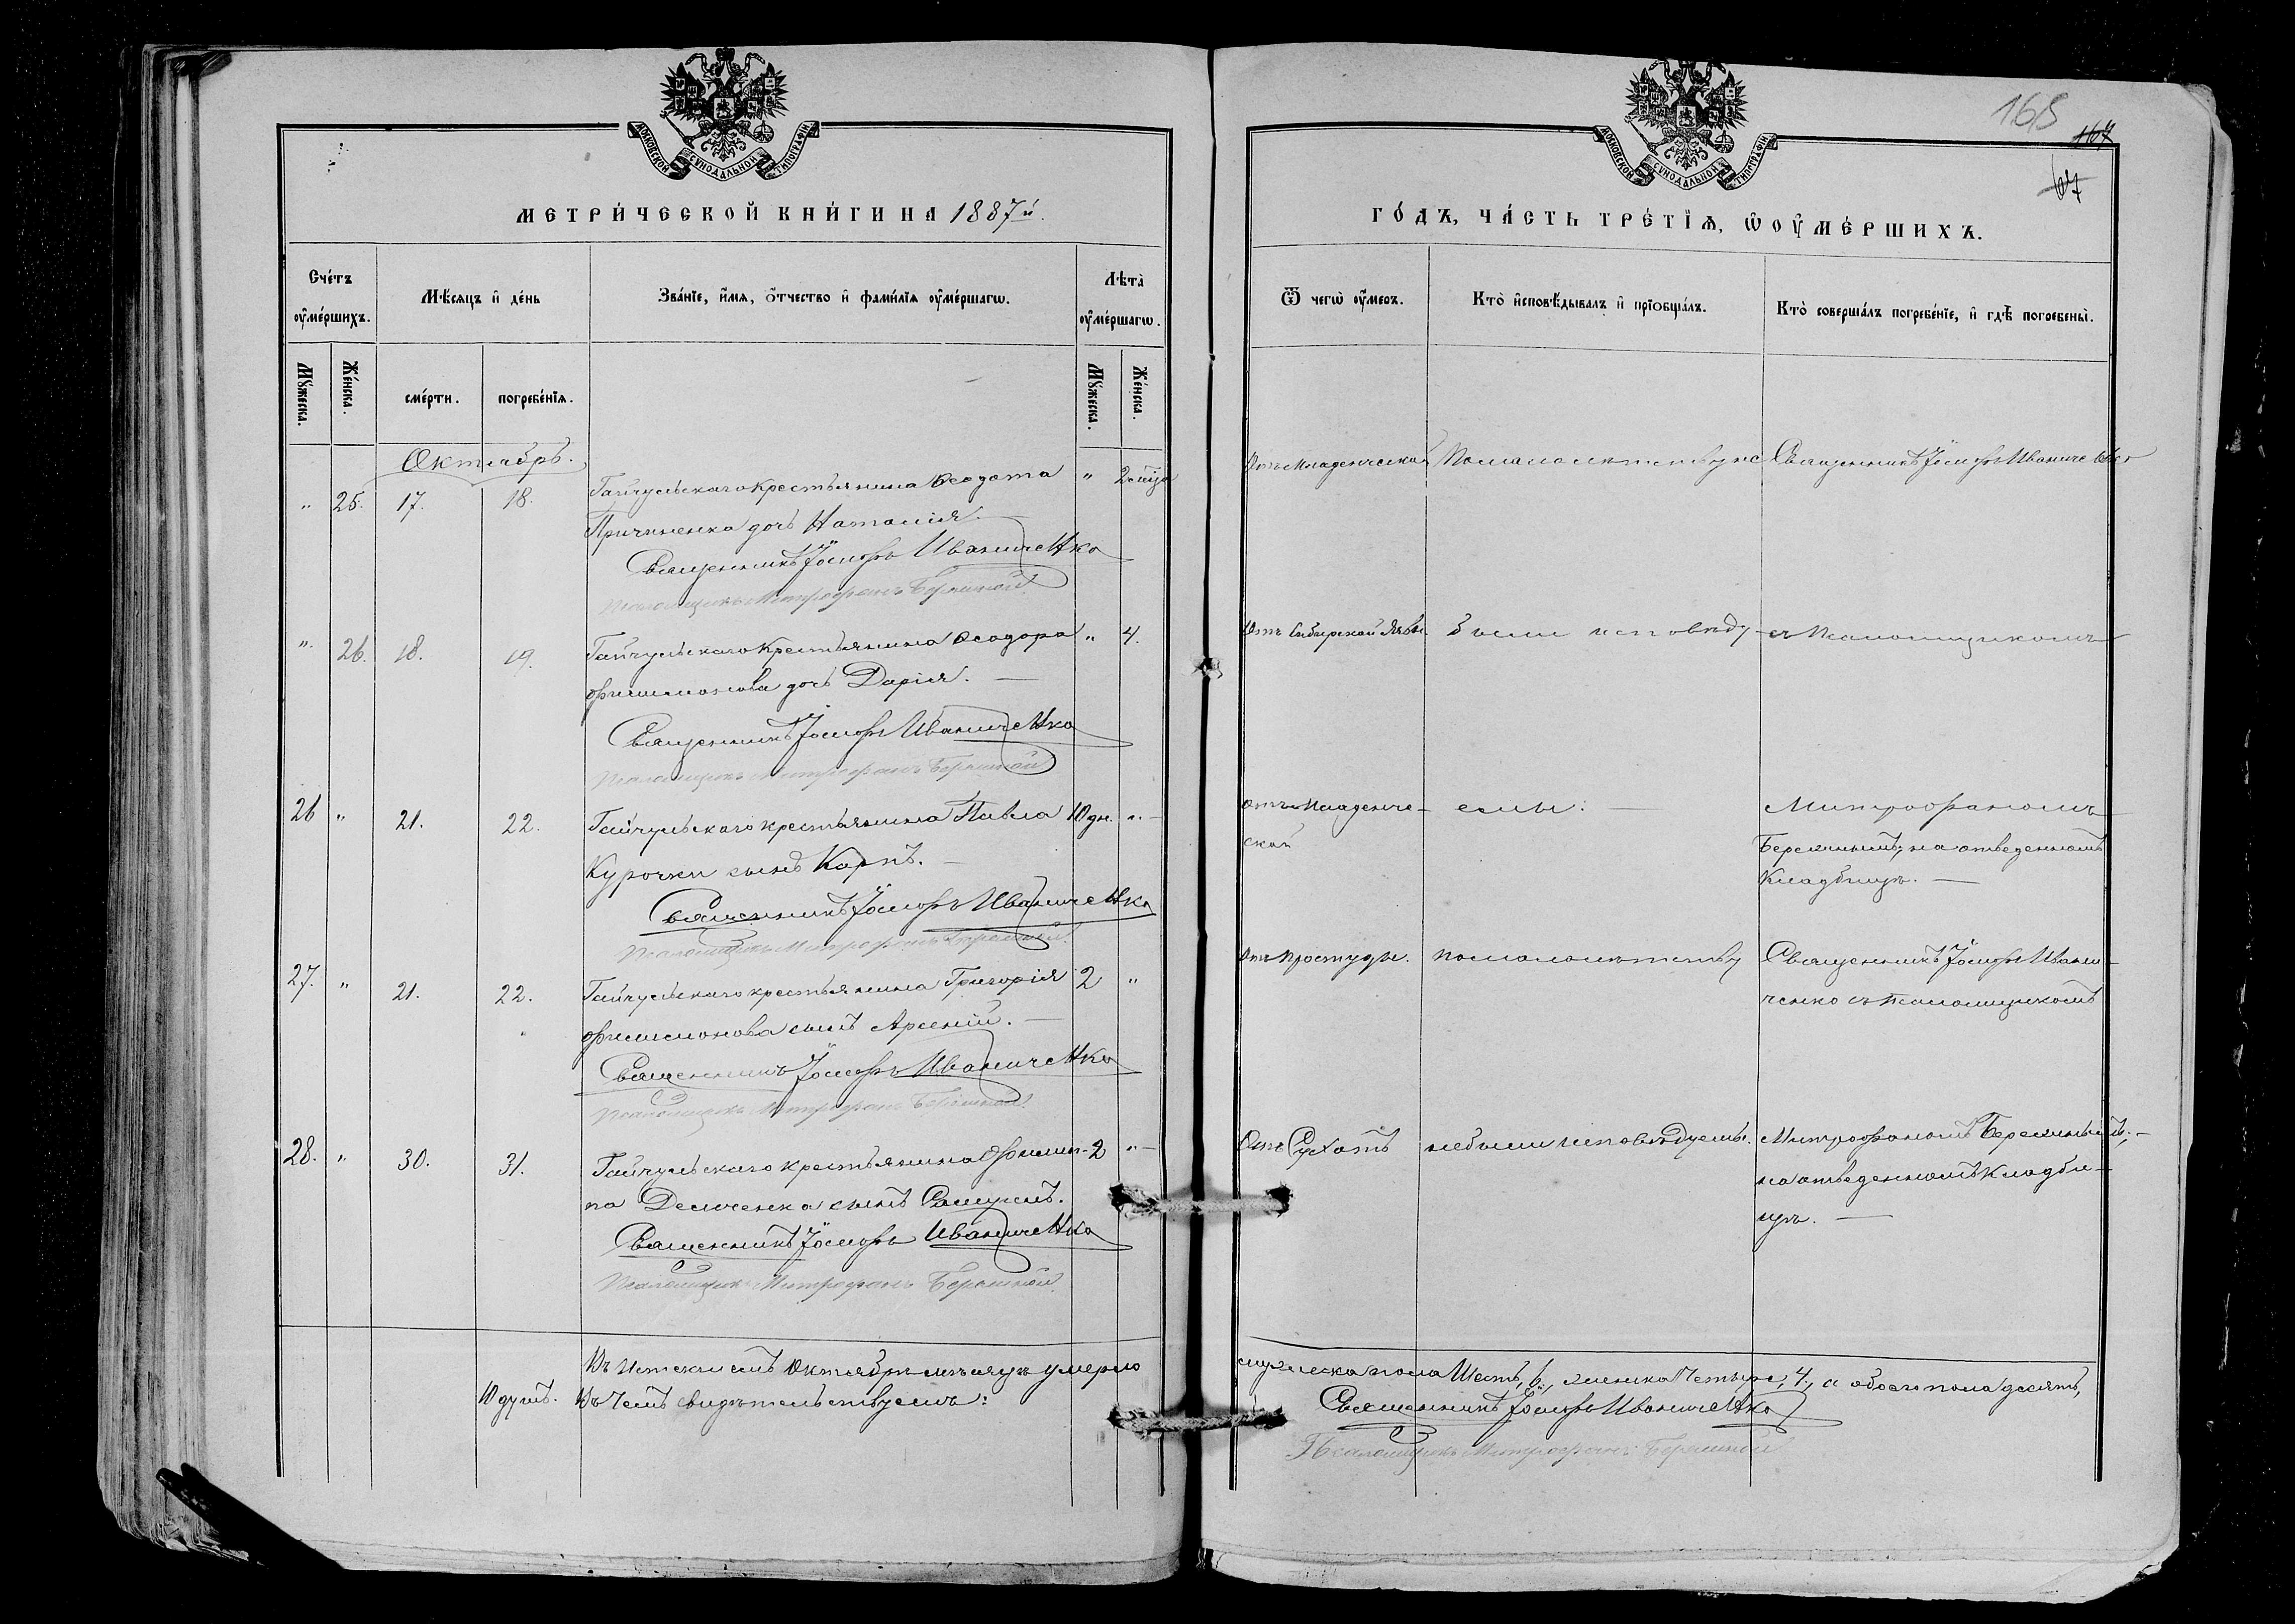 МОСКОВСКОЙ СѴНОДАЛЬНОЙ ТИПОГРАФІИ
МЕТРИ́ЧЕСКОЙ КНИ́ГИ НА 1887й.
Сче́тъ оу҆ме́ршихъ.
Мѣ́сяцъ и҆ де́нь
Зва́нїе, и҆́мя, ѻ҆́тчество и҆ фами́лїя оу҆ме́ршагѡ.
Лѣта̀ оу҆ме́ршагѡ.
Мꙋ́жеска.
Же́нска.
сме́рти.
погребе́нїя.
Мꙋ́жеска.
Же́нска.
Октябрь.
" 25. 17. 18. Гайчульскаго крестьянина Ѳеодота " 2 мѣц
Причиненка дочь Наталія. —
Священникъ Іосифъ Иваниченко
Псаломщикъ Митрофанъ Бережной
" 26. 18. 19. Гайчульскаго Крестьянина Ѳеодора " 4.
Филимонова дочь Дарія. —
Священникъ Іосифъ Иваниченко
Псаломщикъ Митрофанъ Бережной
26 " 21. 22. Гайчульскаго крестьянина Павла 10 дн. "
Курочки сынъ Карпъ. —
Священникъ Іосифъ Иваниченко
Псаломщикъ Митрофанъ Бережной
27. " 21. 22. Гайчульскаго крестьянина Григорія 2 "
Филимонова сынъ Арсеній. —
Священникъ Іосифъ Иваниченко
Псаломщикъ Митрофанъ Бережной
28. " 30. 31. Гайчульскаго крестьянина Филип- 2 "
па Демченка сынъ Самуилъ.
Священникъ Іосифъ Иваниченко
Псаломщикъ Митрофанъ Бережной
Въ Истекшемъ Октябрѣ мѣсяцѣ умерло
10 душъ. Въ Чемъ свидѣтельствуемъ:
168
167
67
МОСКОВСКОЙ СѴНОДАЛЬНОЙ ТИПОГРАФІИ
ГО́ДЪ, ЧА́СТЬ ТРЕ́ТЇѦ, Ѡ҆ ОУ҆МЕ́РШИХЪ.
Ѿ чегѡ̀ оу҆́меръ.
Кто̀ и҆сповѣ́дывалъ и҆ прїобща́лъ.
Кто̀ соверша́лъ погребе́нїе, и҆ гдѣ̀ погребены̀.
Отъ Младенческой По малолѣтству не Священникъ Іосифъ Иваниченко
Отъ Сибирской Язвы. были исповѣду- съ Псаломщикомъ
отъ Младенче- емы: — Митрофаномъ
ской
Бережнымъ; на отведенномъ
Кладбищѣ. —
Отъ Простуды. по малолѣтству Священникъ Іосифъ Ивани-
ченко съ Псаломщикомъ
Отъ Сухотъ не были исповѣдуемы. Митрофаномъ Бережнымъ; —
на отведенномъ Кладби-
щѣ. —
мужеска пола Шесть, 6., женска Четыре, 4., а обоего пола десять,
Священникъ Іосифъ Иваниченко
Псаломщикъ Митрофанъ Бережной